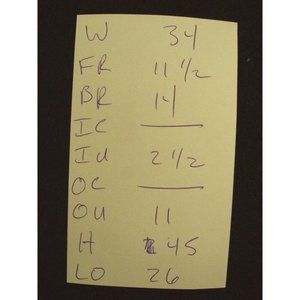 W 34
FR 11 1/2
BR 14
IC ___
Id 2 1/2
OC ___
OU 11
H 45
LO 26